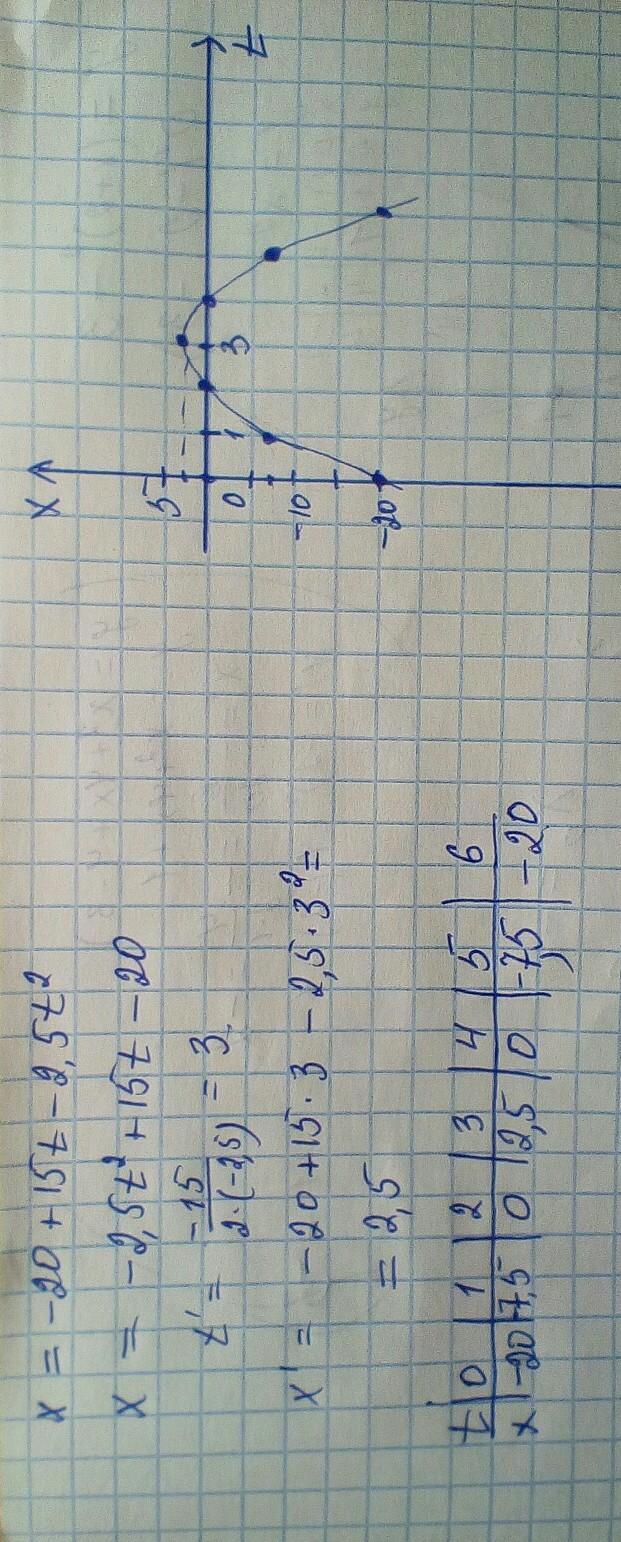 x = -20 + 15t - 2,5t²
x = -2,5t² + 15t - 20
t' = -15 / 2·(-2,5) = 3
x' = -20 + 15·3 - 2,5·3² =
= 2,5
t | 0 | 1 | 2 | 3 | 4 | 5 | 6
x | -20 | -7,5 | 0 | 2,5 | 0 | -7,5 | -20
x
5
0
-10
-20
1
3
t